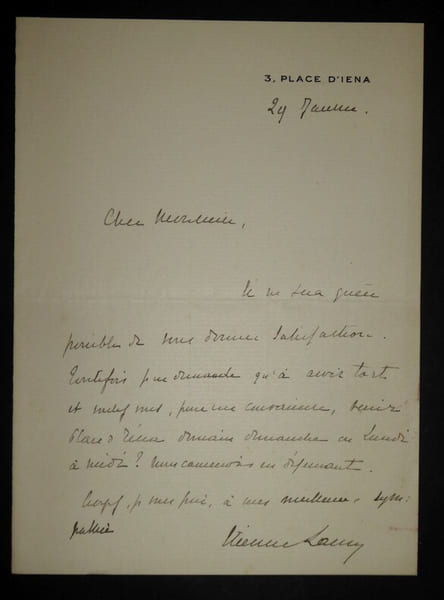 3, PLACE D'IENA
29 Janvier.
Cher Monsieur,
Il ne sera guère
possible de vous donner satisfaction.
Toutefois je ne demande qu'à avoir tort
et voulez vous, pour me convaincre, venir
Place d'Iéna demain dimanche ou Lundi
à midi? Nous causerons en déjeunant.
Croyez, je vous prie, à mes meilleures sym-
pathies
Etienne Lamy